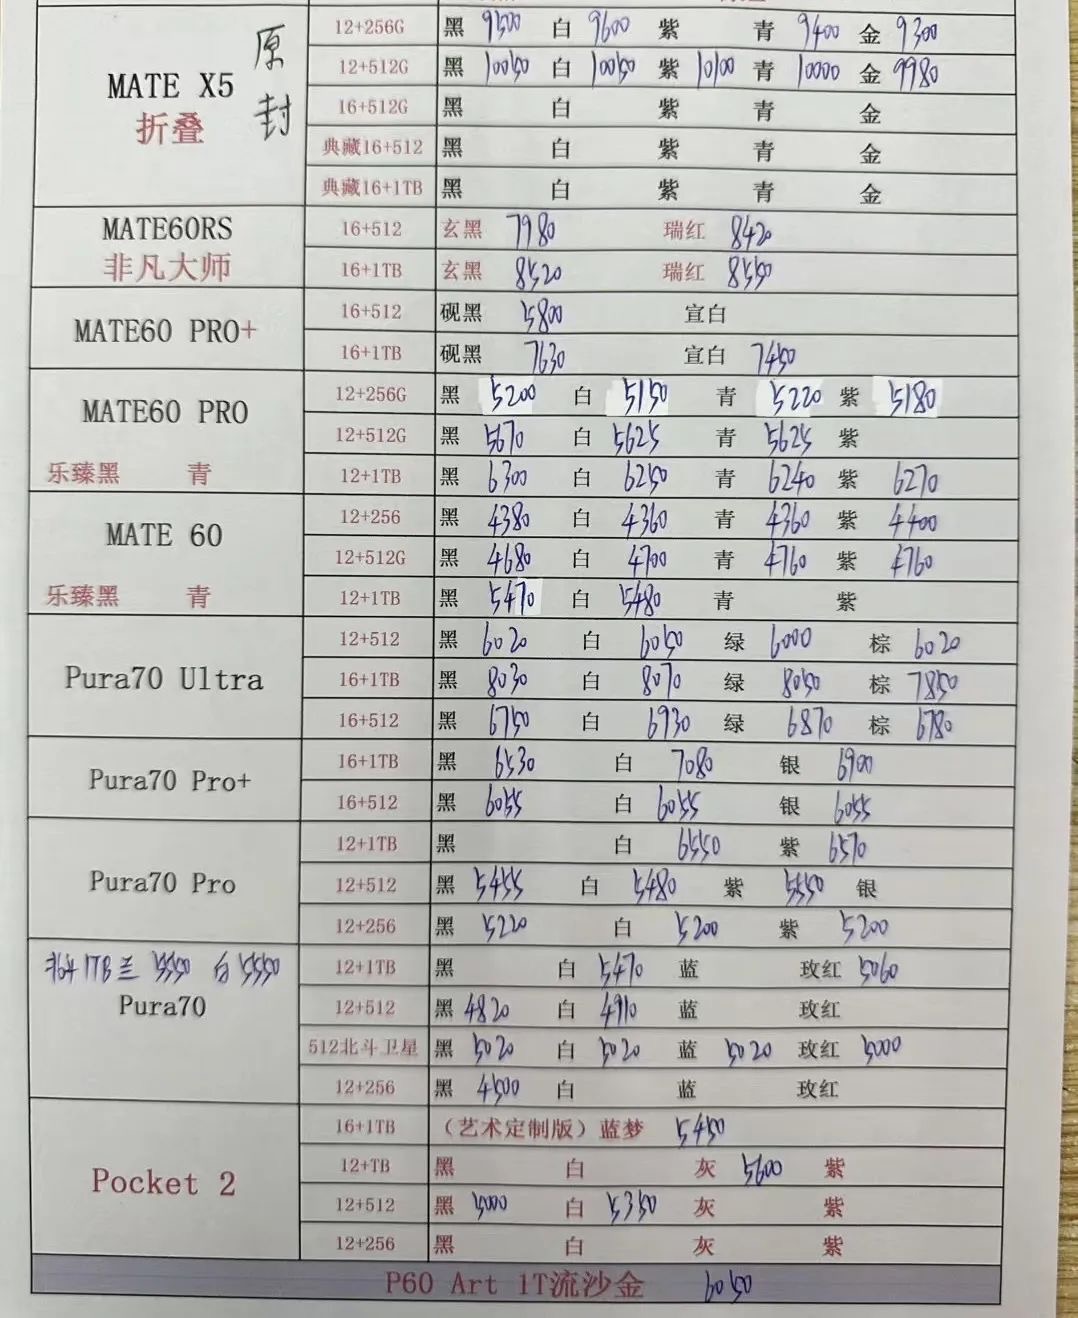 12+256G 黑 9500 白 9600 紫 青 9400 金 9300
MATE X5 原封 12+512G 黑 10050 白 10050 紫 10100 青 10000 金 9980
折叠 16+512G 黑 白 紫 青 金
典藏16+512 黑 白 紫 青 金
典藏16+1TB 黑 白 紫 青 金
MATE60RS 16+512 玄黑 7980 瑞红 8420
非凡大师 16+1TB 玄黑 8520 瑞红 8550
MATE60 PRO+ 16+512 砚黑 5800 宣白
16+1TB 砚黑 7630 宣白 7450
MATE60 PRO 12+256G 黑 5200 白 5150 青 5220 紫 5180
12+512G 黑 5670 白 5625 青 5625 紫
乐臻黑 青 12+1TB 黑 6300 白 6250 青 6240 紫 6270
MATE 60 12+256 黑 4380 白 4360 青 4360 紫 4400
12+512G 黑 4680 白 4700 青 4760 紫 4760
乐臻黑 青 12+1TB 黑 5470 白 5480 青 紫
12+512 黑 6020 白 6050 绿 6000 棕 6020
Pura70 Ultra 16+1TB 黑 8030 白 8070 绿 8050 棕 7850
16+512 黑 6750 白 6930 绿 6870 棕 6780
Pura70 Pro+ 16+1TB 黑 6530 白 7080 银 6900
16+512 黑 6055 白 6055 银 6055
12+1TB 黑 白 6550 紫 6570
Pura70 Pro 12+512 黑 5455 白 5480 紫 5550 银
12+256 黑 5220 白 5200 紫 5200
1TB 兰 5550 白 5550 12+1TB 黑 白 5470 蓝 玫红 5060
Pura70 12+512 黑 4820 白 4910 蓝 玫红
512北斗卫星 黑 5020 白 5020 蓝 5020 玫红 5000
12+256 黑 4500 白 蓝 玫红
16+1TB (艺术定制版) 蓝梦 5450
Pocket 2 12+TB 黑 白 灰 5600 紫
12+512 黑 5000 白 5350 灰 紫
12+256 黑 白 灰 紫
P60 Art 1T流沙金 6050